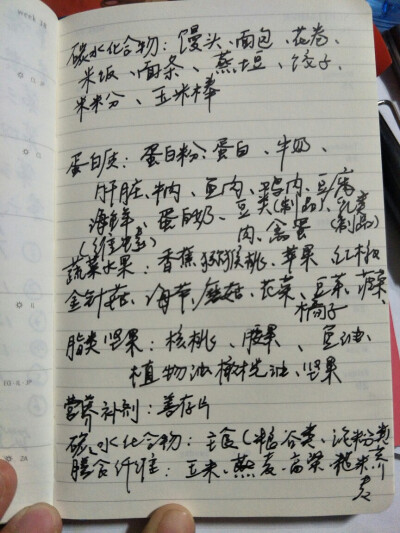 week 28
碳水化合物：馒头、面包、花卷、
米饭、面条、蒸土豆、饺子、
米米分、玉米棒
蛋白质：蛋白粉：蛋白、牛奶、
肝脏、牛肉、鱼肉、鸡肉、豆腐
海鲜、蛋白奶、豆类(制品)、乳
(制品)
肉、禽蛋
蔬菜水果：香蕉、猕猴桃、苹果、红椒
金针菇、海带、蘑菇、花菜、豆芽、菠菜
橘子
脂类坚果：核桃、腰果、豆油、
植物油、橄榄油、坚果
营养补剂：善存片
碳水化合物：主食(粮谷类、淀粉类
膳食纤维：玉米、燕麦、高粱、糙米、荞
麦